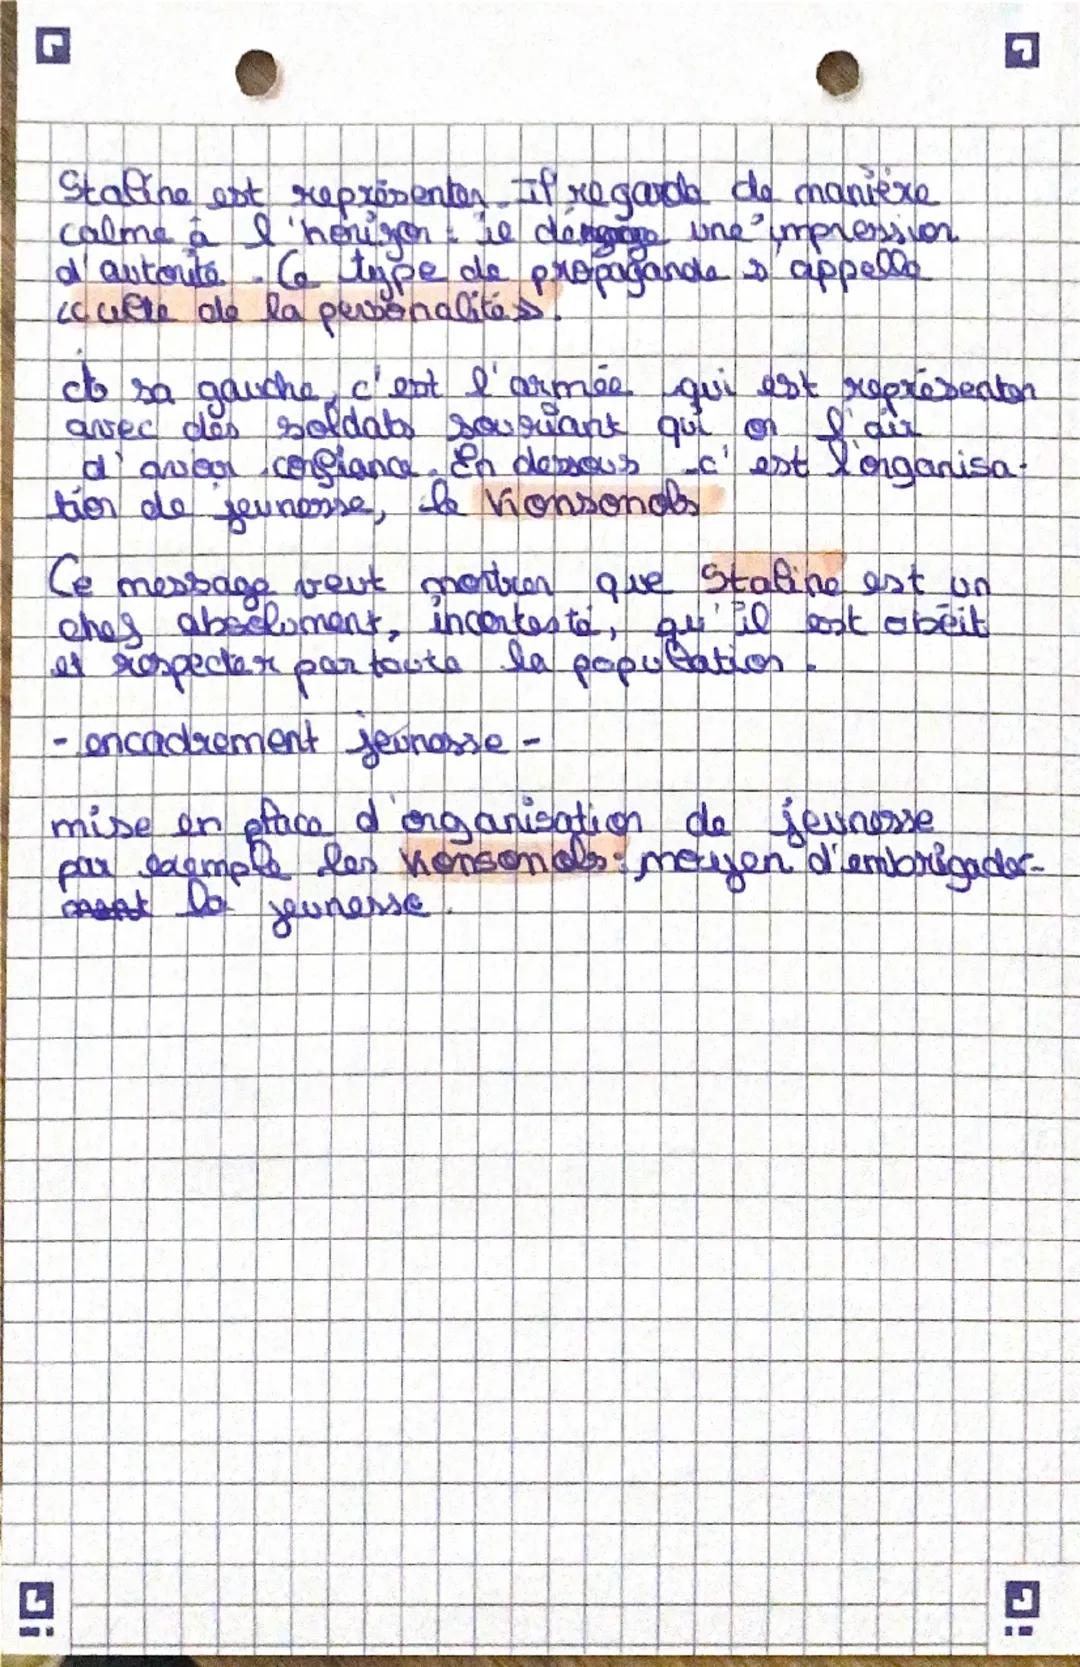 Staline est représenter. Il regarde de manière
calme à l'horizon : il dégage une impression
d'autorité. Ce type de propagande s'appelle
<<culte de la personalités>>.
à sa gauche, c'est l'armée qui est représenter
avec des soldats souriant qui on l'air
d'avoir confiance. En dessous c'est l'organisa-
tion de jeunesse, le Komsomols
Ce message veut montrer que Staline est un
chef absolument, incontesté, qu'il est obéit
et respecter par toute la population.
- encadrement jeunesse -
mise en place d'organisation de jeunesse
par exemple les Komsomols : moyen d'embrigader-
la jeunesse.